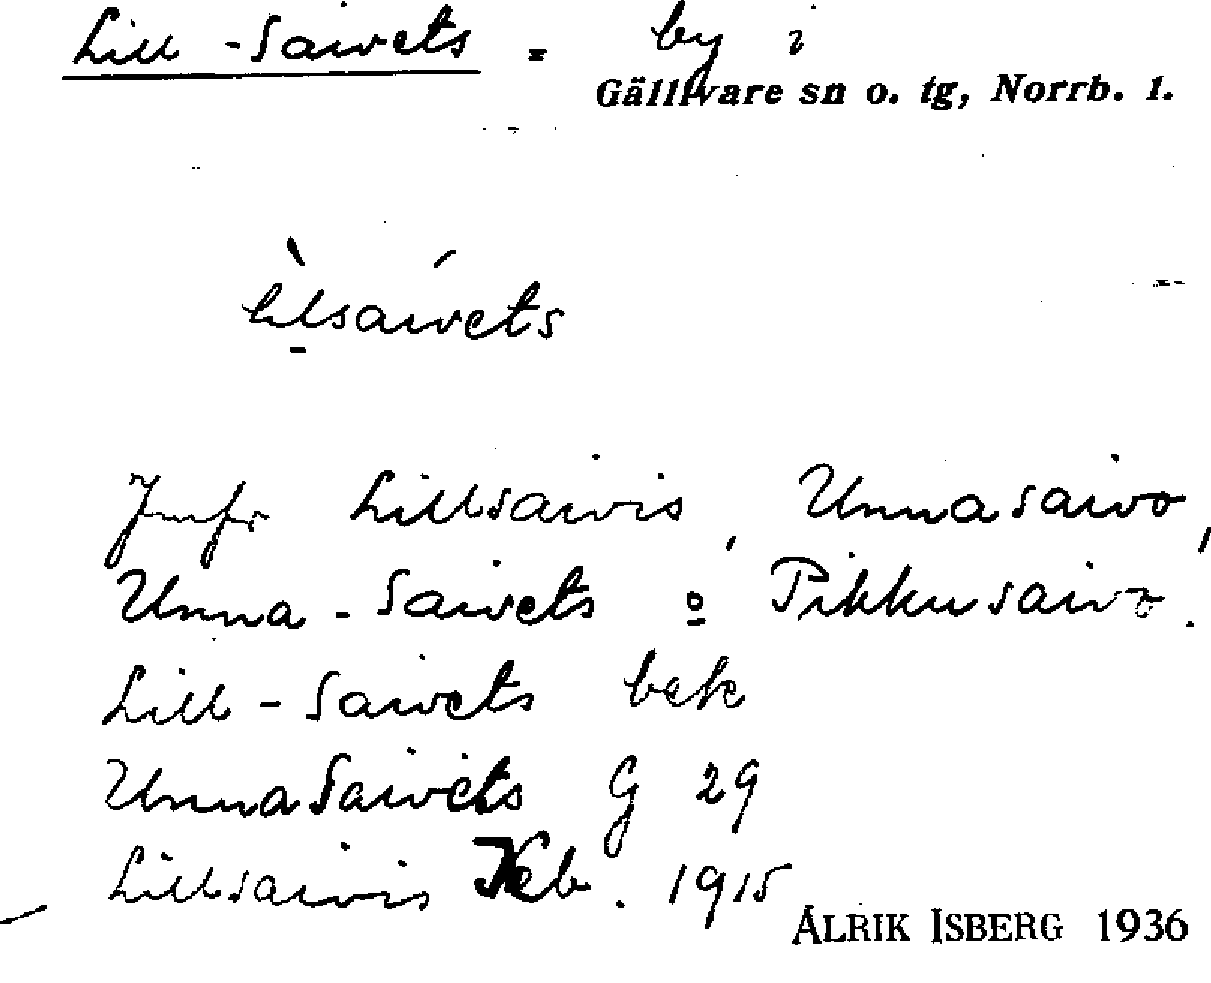 Lill-Saivets - by i
Gällivare sn o. tg, Norrb. l.
lìlsáivets
Jmfr Lillsaivis, Unnasaivo,
Unna-Saivets o Pikkusaivo.
Lill-Saivets bek
UnnaSaivets G 29
Lillsaivis Jeb. 1915
ALRIK ISBERG 1936